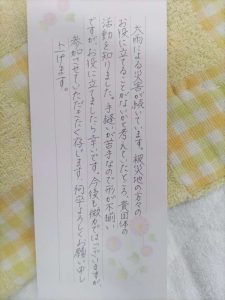 大雨による災害が続いています。被災地の方々の
お役に立てることがないかと考えていたところ、貴団体の
活動を知りました。手縫いが苦手なので形が不揃い
ですが、お役に立てましたら幸いです。今後も微力ではございますが
参加させていただきたく存じます。何卒よろしくお願い申し
上げます。